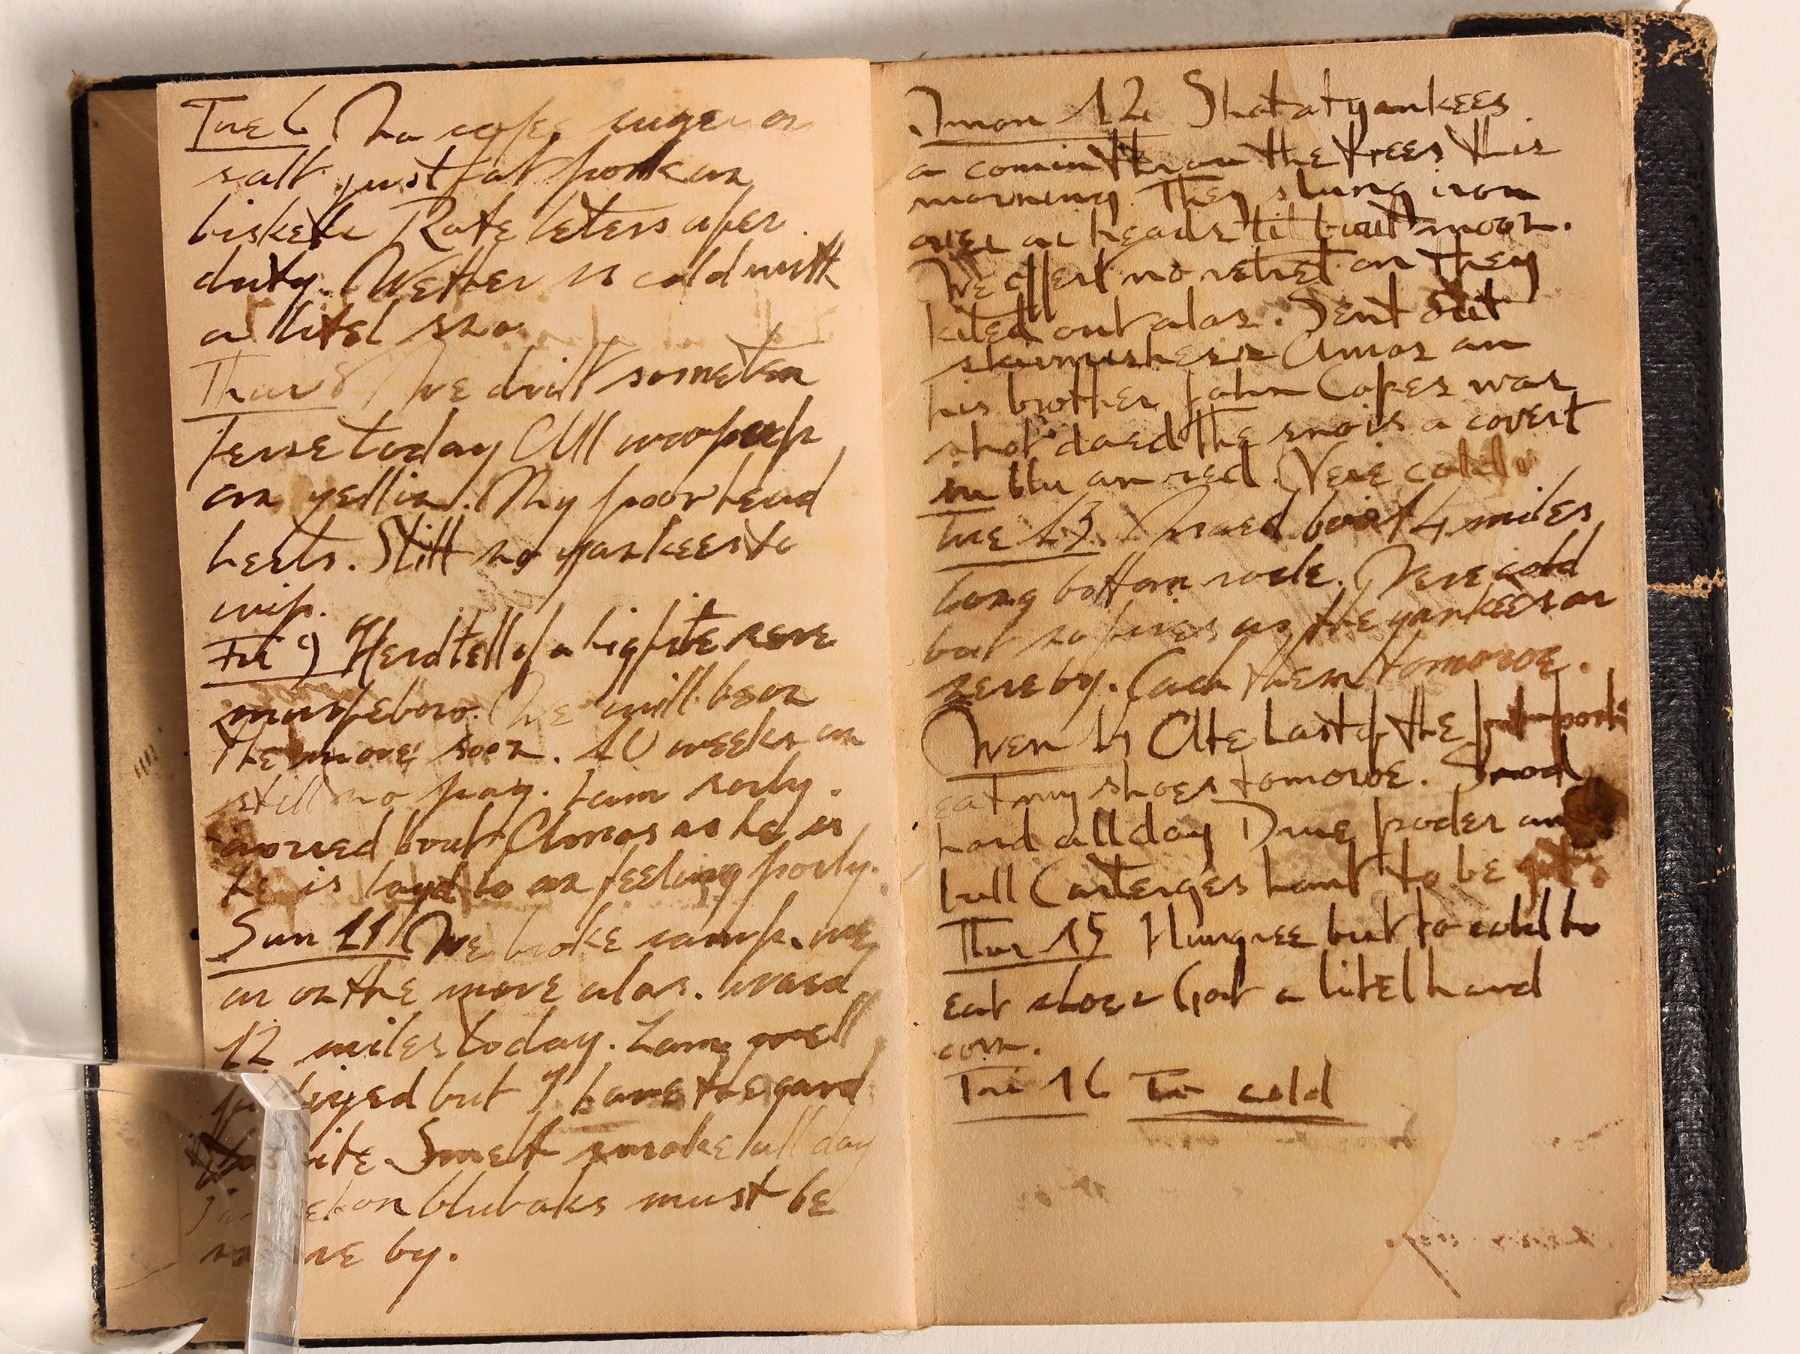 Tue 6 No cofee suger or
salt just fat pork an
biskets Rote leters after
duty. Wether is cold with
a litel sno
Thur 8 We drilt sometin
ferse today All woopup
an yellin. My poor head
heerts. Still no yankees to
wip.
Fri 9 Herd tell of a big fite nere
murfeboro. We will be on
the move soon. 10 weeks an
still no pay. I am sorly.
worred bout Amos as he is
he is layd lo an feeling porly.
Sun 11 We broke camp. we
ar on the move alas. Marcd
12 miles today. I am well
tiyed but I have the gard
nite Smelt smoke all day
rekon blubaks must be
by.
Mon 12 Shot at yankees
a comin throu the trees this
morning They slung iron
over ar heads til bout noon.
We offert no retret an they
kited out alas. Sent out
skirmishers Amos an
his brother John Copes war
shot daed the sno is a covert
in blu an red. Vere cold
Tue 13 Marcd bout 4 miles
long bottom rode. Vere cold
but no fires as the yankees ar
nere by. Cach them tomoroe.
Wen 14 Ate last of the fat pork
eat my shoes tomoroe. Snod
hard all day Drie poder an
ball Carterges hant to be got
Thur 15 Hungree but to cold to
eat shoes Got a litel hard
corn.
Fri 16 To cold